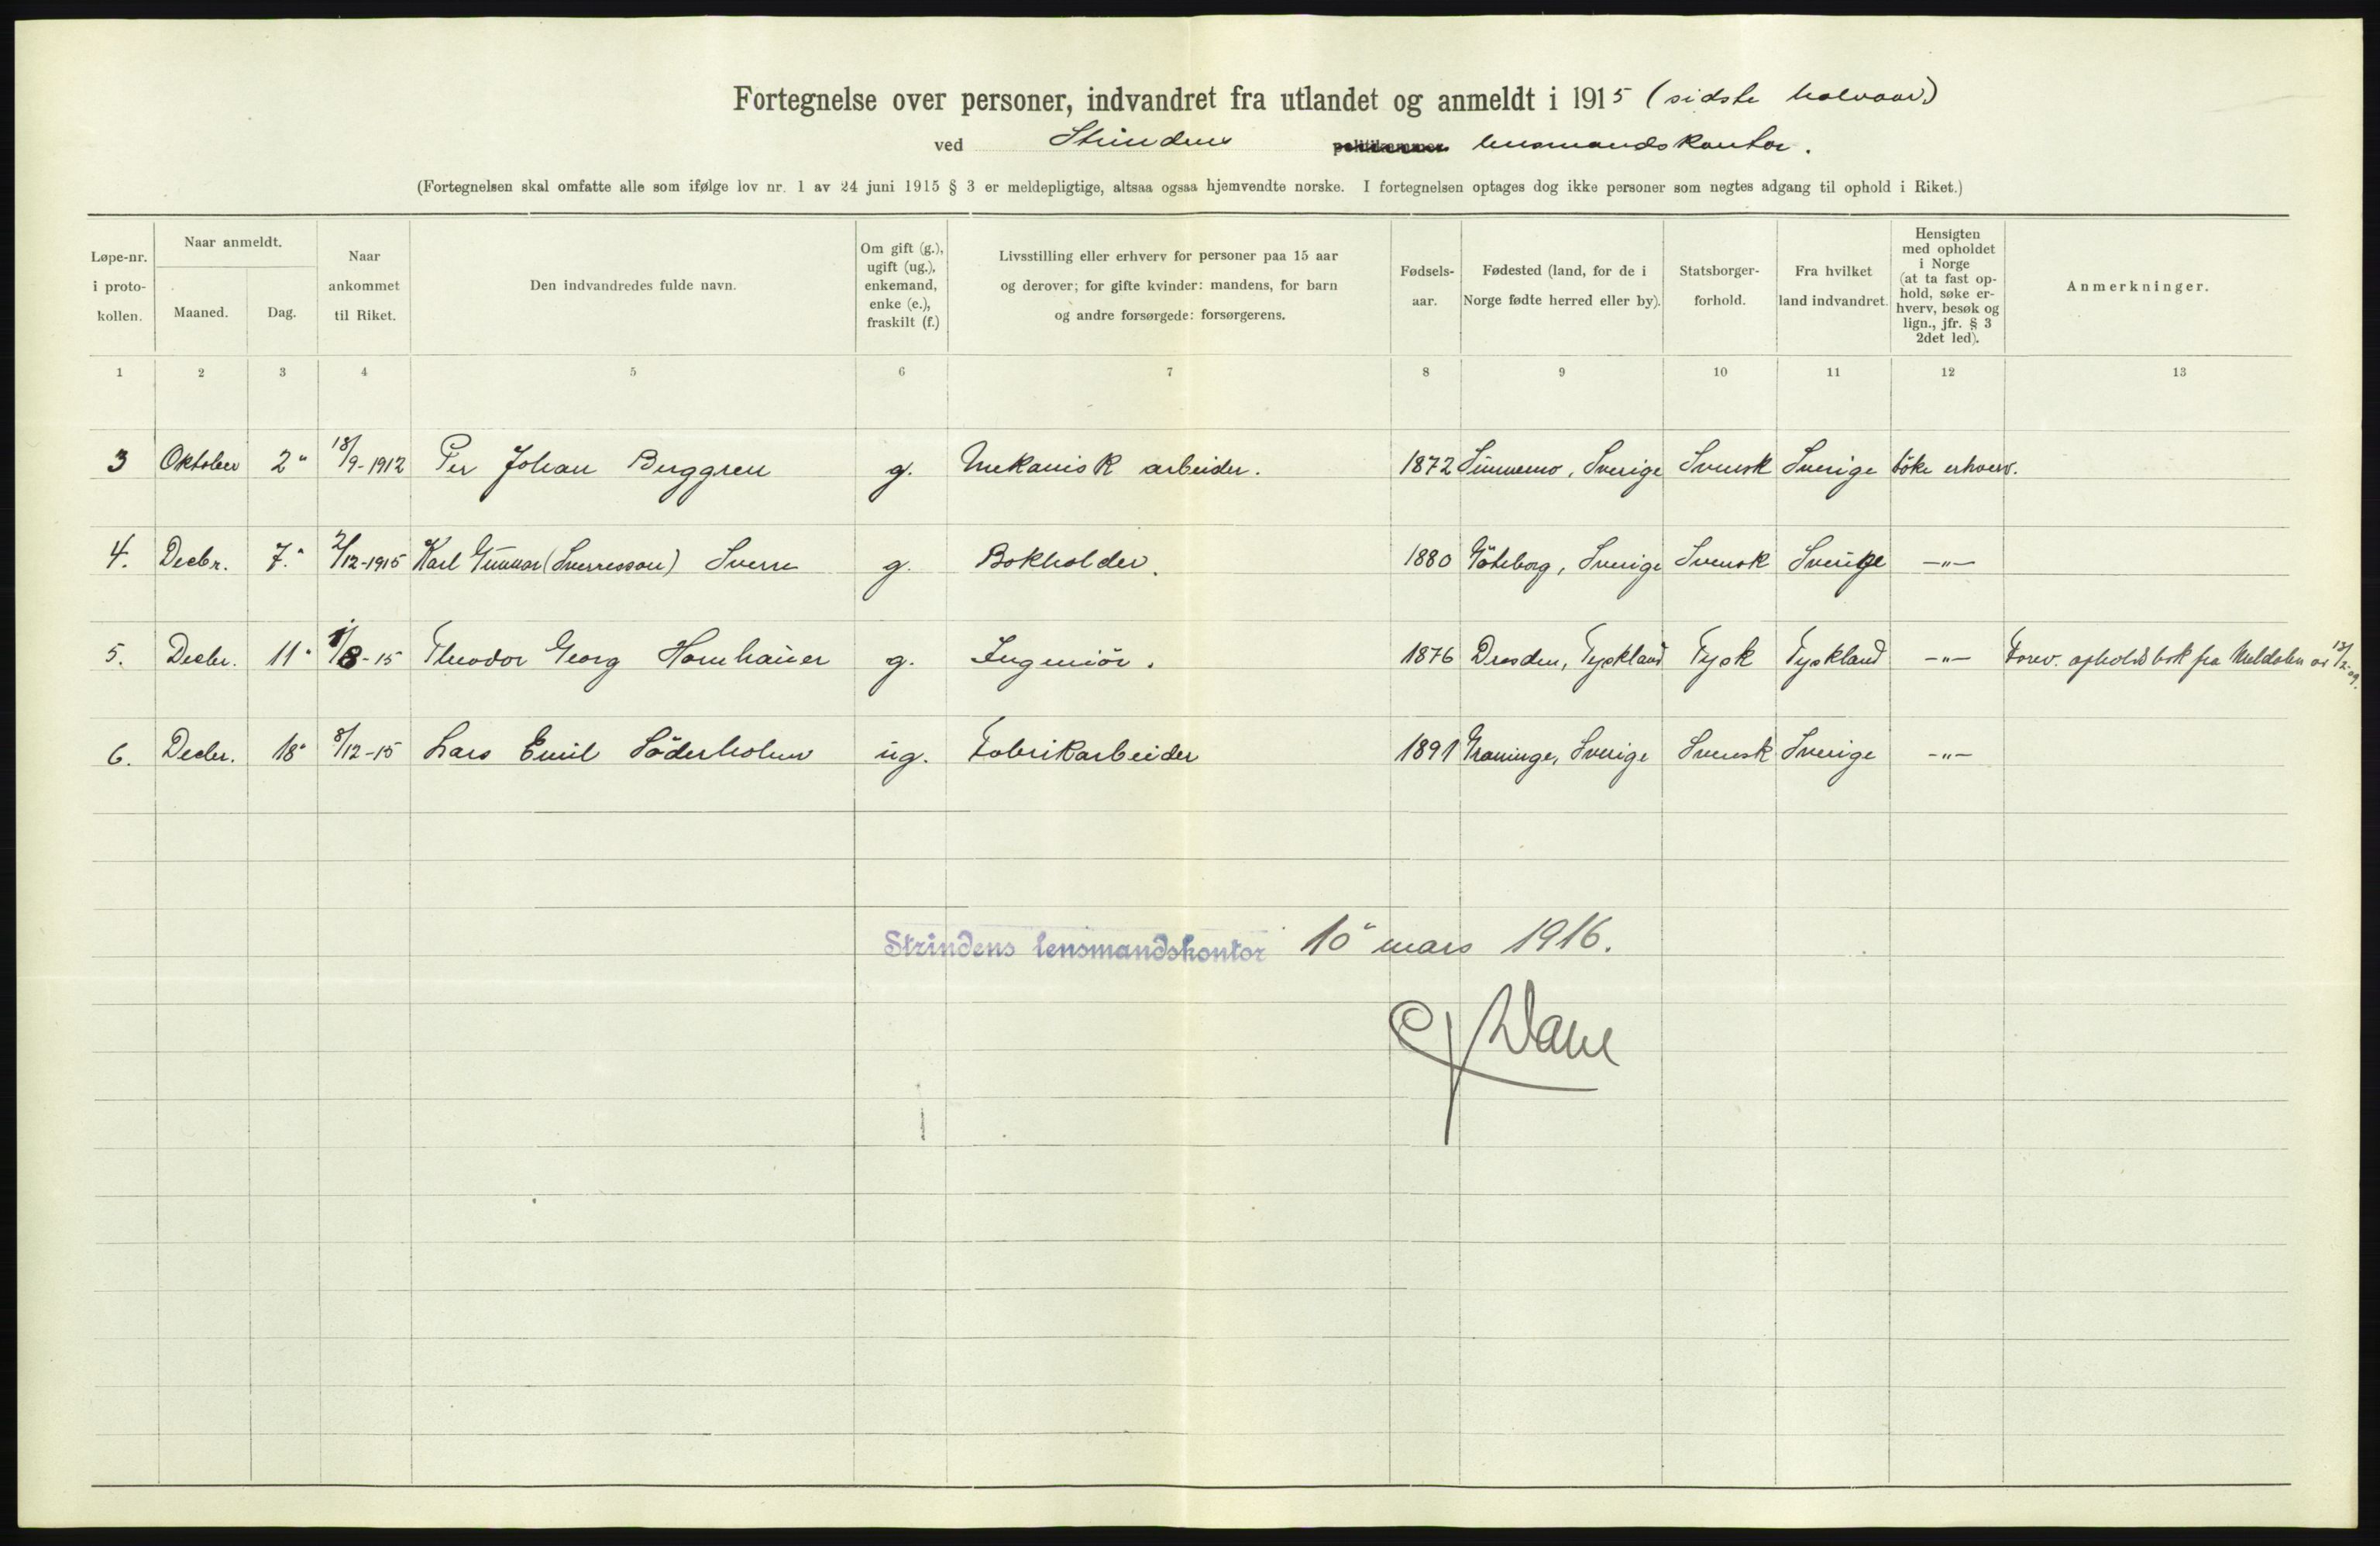 Fortegnelse over personer, indvandret fra utlandet og anmeldt i 1915 (sidste halvaar)
ved Strindens politikammer lensmandskontor.
(Fortegnelsen skal omfatte alle som ifølge lov nr. 1 av 24 juni 1915 § 3 er meldepligtige, altsaa ogsaa hjemvendte norske. I fortegnelsen optages dog ikke personer som negtes adgang til ophold i Riket.)
Løpe-nr. i proto-kollen.
Naar anmeldt.
Maaned.
Dag.
Naar ankommet til Riket.
Den indvandredes fulde navn.
Om gift (g.), ugift (ug.), enkemand, enke (e.), fraskilt (f.)
Livsstilling eller erhverv for personer paa 15 aar og derover; for gifte kvinder: mandens, for barn og andre forsørgede: forsørgerens.
Fødsels-aar.
Fødested (land, for de i Norge fødte herred eller by).
Statsborger-forhold.
Fra hvilket land indvandret.
Hensigten med opholdet i Norge (at ta fast op-hold, søke er-hverv, besøk og lign., jfr. § 3 2det led).
Anmerkninger.
1 2 3 4 5 6 7 8 9 10 11 12 13
3 Oktober 2" 18/9-1912 Per Johan Berggren g. Mekanisk arbeider. 1872 Sunnemo, Sverige Svensk Sverige söke erhverv.
4. Decbr. 7." 2/12-1915 Karl Gunnar (Sverresson) Sverre g. Bokholder. 1880 Göteborg, Sverige Svensk Sverige -"-
5. Decbr. 11" 1/8-15 Theodor Georg Hornhauer g. Ingeniör. 1876 Dresden, Tyskland Tysk Tyskland -"- Forev. opholdsbok fra Meldalen av
6. Decbr. 18" 8/12-15 Lars Emil Söderholm ug. Fabrikarbeider 1891 Graninge, Sverige Svensk Sverige -"-
Strindens lensmandskontor 10" mars 1916.